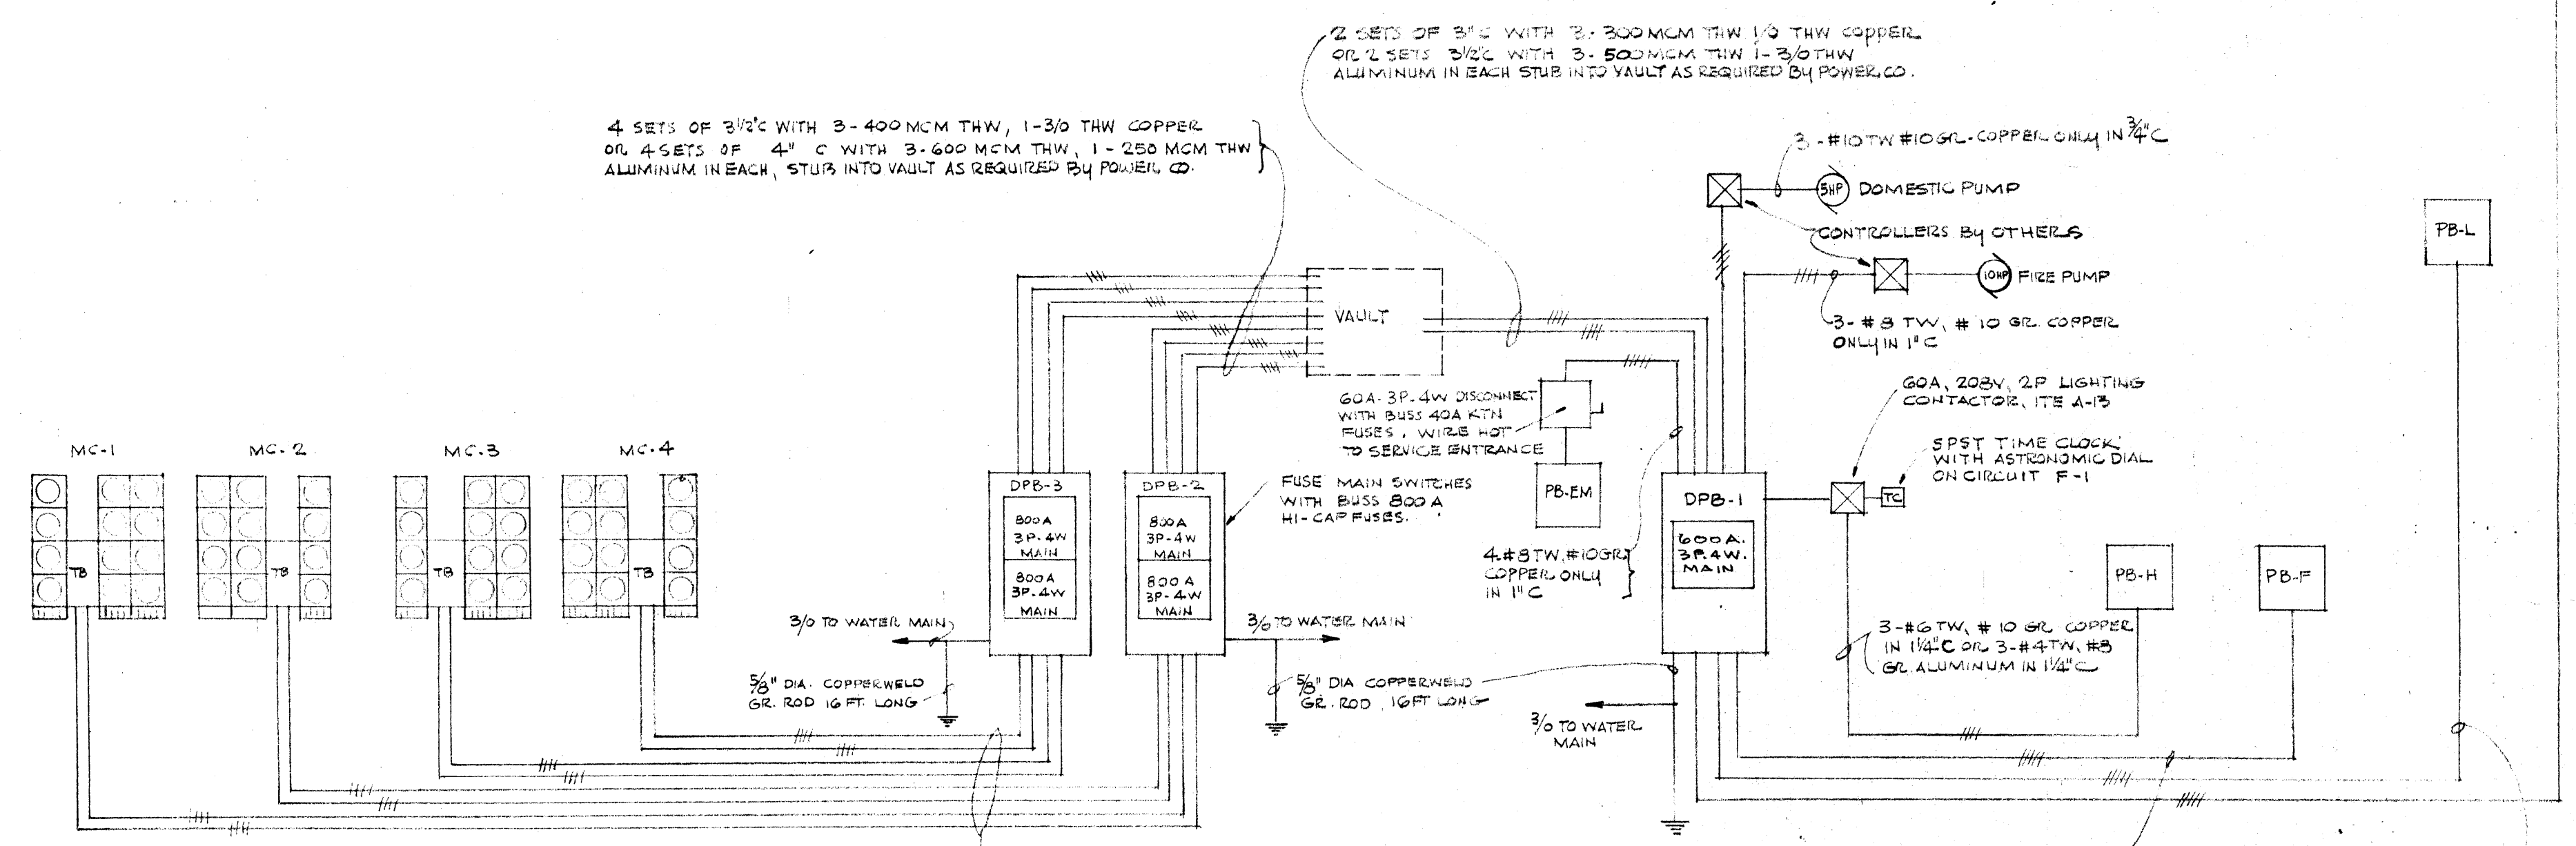 2 SETS OF 3"C WITH 3-300 MCM THW 1/0 THW COPPER
OR 2 SETS 3½"C WITH 3-500 MCM THW 1-3/0 THW
ALUMINUM IN EACH STUB INTO VAULT AS REQUIRED BY POWER CO.
4 SETS OF 3½"C WITH 3-400 MCM THW, 1-3/0 THW COPPER
OR 4 SETS OF 4" C WITH 3-600 MCM THW, 1-250 MCM THW
ALUMINUM IN EACH, STUB INTO VAULT AS REQUIRED BY POWER CO.
3-#10 TW #10 GR-COPPER ONLY IN ¾"C
5HP DOMESTIC PUMP
CONTROLLERS BY OTHERS
10HP FIRE PUMP
3-#8 TW, #10 GR. COPPER
ONLY IN 1"C
PB-L
VAULT
60A-3P-4W DISCONNECT
WITH BUSS 40A KTN
FUSES, WIRE HOT
TO SERVICE ENTRANCE
60A, 208V, 2P LIGHTING
CONTACTOR, ITE A-13
SPST TIME CLOCK,
WITH ASTRONOMIC DIAL
ON CIRCUIT F-1
TC
MC-1
MC-2
MC-3
MC-4
TB
TB
TB
TB
DPB-3
800A
3P-4W
MAIN
800A
3P-4W
MAIN
DPB-2
800A
3P-4W
MAIN
800A
3P-4W
MAIN
FUSE MAIN SWITCHES
WITH BUSS 800A
HI-CAP FUSES.
PB-EM
DPB-1
600A.
3P.4W.
MAIN
4-#8 TW, #10 GR.
COPPER ONLY
IN 1"C
PB-H
PB-F
3/0 TO WATER MAIN
3/0 TO WATER MAIN
5/8" DIA. COPPERWELD
GR. ROD 16 FT. LONG
5/8" DIA COPPERWELD
GR. ROD, 16 FT LONG
3/0 TO WATER
MAIN
3-#6 TW, #10 GR COPPER
IN 1¼"C OR 3-#4 TW, #8
GR. ALUMINUM IN 1¼"C